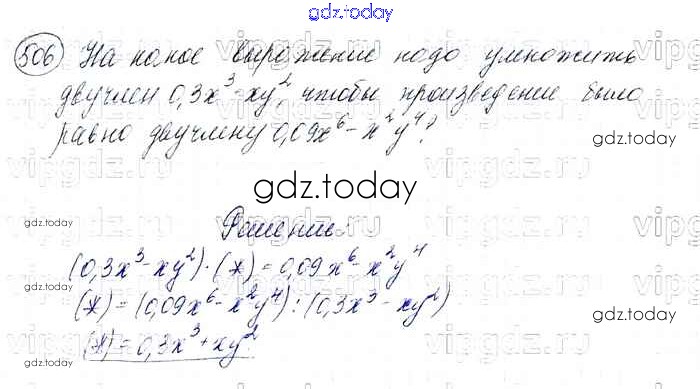 gdz.today
506 На какое выражение надо умножить
двучлен 0,3x³-xy², чтобы произведение было
равно двучлену 0,09x⁶-x²y⁴?
vipgdz.ru
gdz.today
gdz.today
gdz.today
Решение:
(0,3x³-xy²)·(*)=0,09x⁶-x²y⁴
(*)=(0,09x⁶-x²y⁴):(0,3x³-xy²)
(*)=0,3x³+xy²
gdz.today
gdz.today